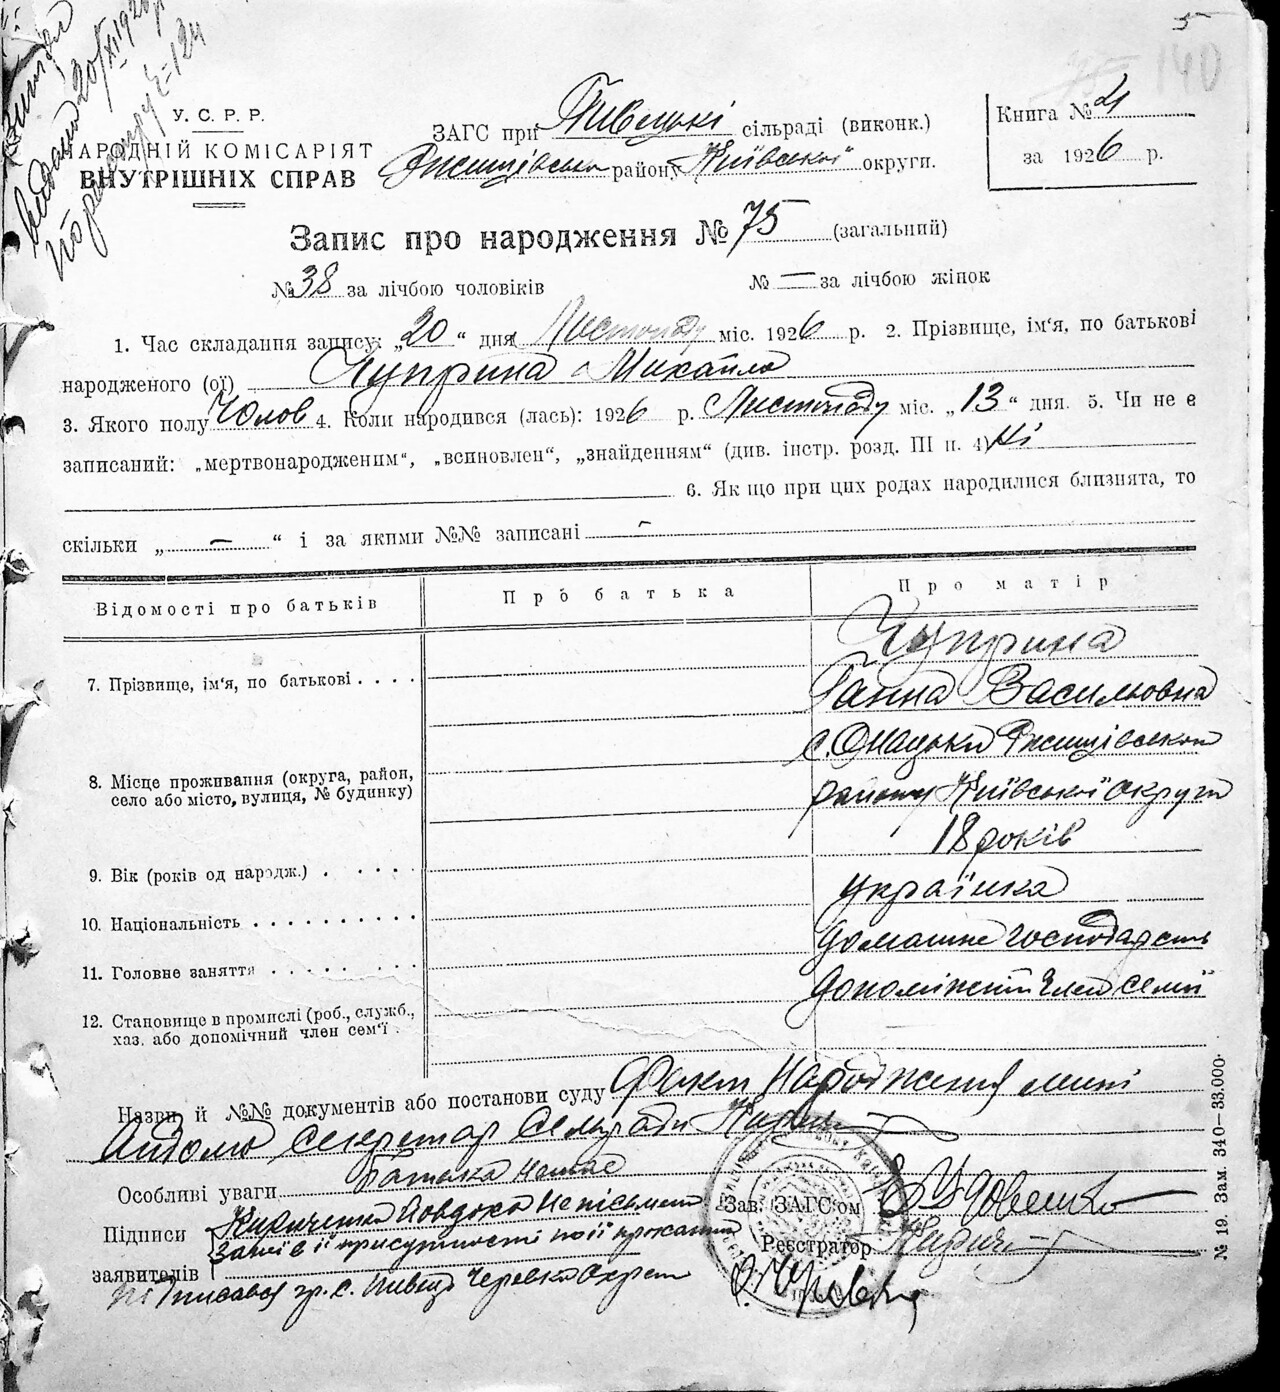 5
140
Витяг
видано 20/XI 1926 р.
У. С. Р. Р.
НАРОДНІЙ КОМІСАРІЯТ
ВНУТРІШНІХ СПРАВ
ЗАГС при Пивецькі сільраді (виконк.)
Ржищівська району Київської округи.
Книга № 4
за 1926 р.
Запис про народження № 75 (загальний)
№ 38 за лічбою чоловіків № — за лічбою жінок
1. Час складання запису: „20“ дня Листопаду міс. 1926 р. 2. Прізвище, ім‘я, по батькові
народженого (ої) Чуприна Михайло
3. Якого полу Чолов 4. Коли народився (лась): 1926 р. Листопаду міс. „13“ дня. 5. Чи не є
записаний: „мертвонародженим“, „всиновлен“, „знайденням“ (див. інстр. розд. III п. 4) Ні
6. Як що при цих родах народилися близнята, то
скільки „ — “ і за якими №№ записані —
Відомості про батьків Про батька Про матір
Чуприна
7. Прізвище, ім‘я, по батькові . . . . Ганна Василовна
с. Онацьки Ржищівского
8. Місце проживання (округа, район,
село або місто, вулиця, № будинку) району Київської округи
18 років
9. Вік (років од народж.) . . . . .
українка
10. Національність . . . . . . . . . .
домашне господарсть
11. Головне заняття . . . . . . . .
допоміжний член семії
12. Становище в промислі (роб., служб.,
хаз. або допомічний член сем‘ї .
Назви й №№ документів або постанови суду Факт народження мині
відомо секретар сельради
Особливі уваги батька немає
Підписи Кириченка Йовдоха неписьмена
заявителів за неї в її присутності по її прохани
підписався гр. с. Пивец Черевко
Зав. ЗАГС‘ом
Реєстратор
№ 19. Зам. 340—33.000.